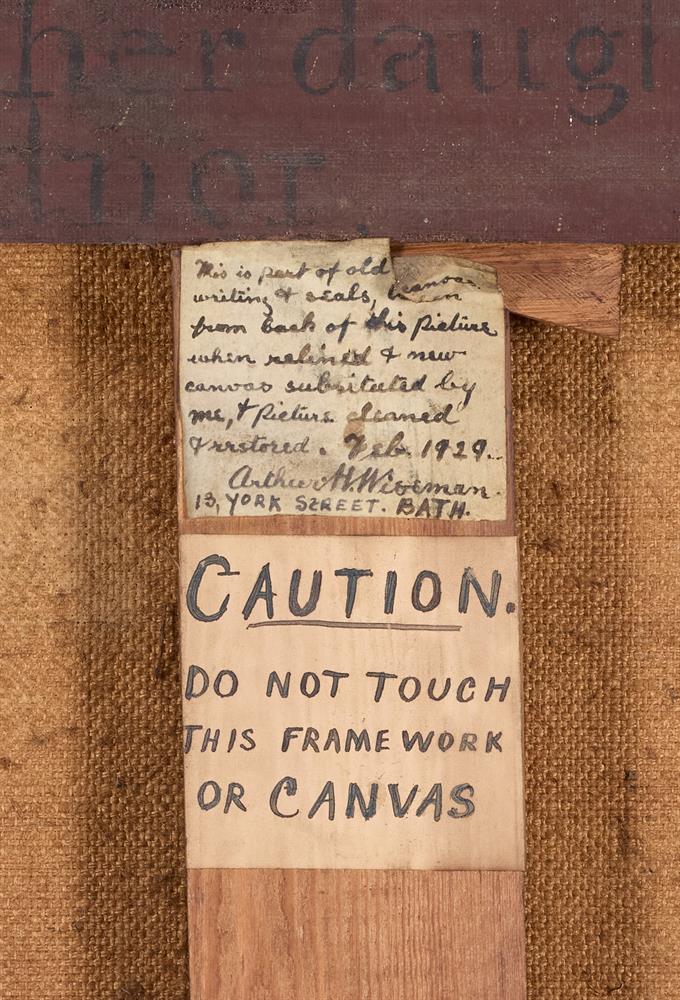 her daugh
nor.
This is part of old canvas
writing & seals, taken
from back of this Picture
when relined & new
canvas subsituted by
me, & Picture cleaned
& rrstored. Feb. 1929.
Arthur H. Wiseman.
13, YORK STREET. BATH.
CAUTION.
DO NOT TOUCH
THIS FRAMEWORK
OR CANVAS